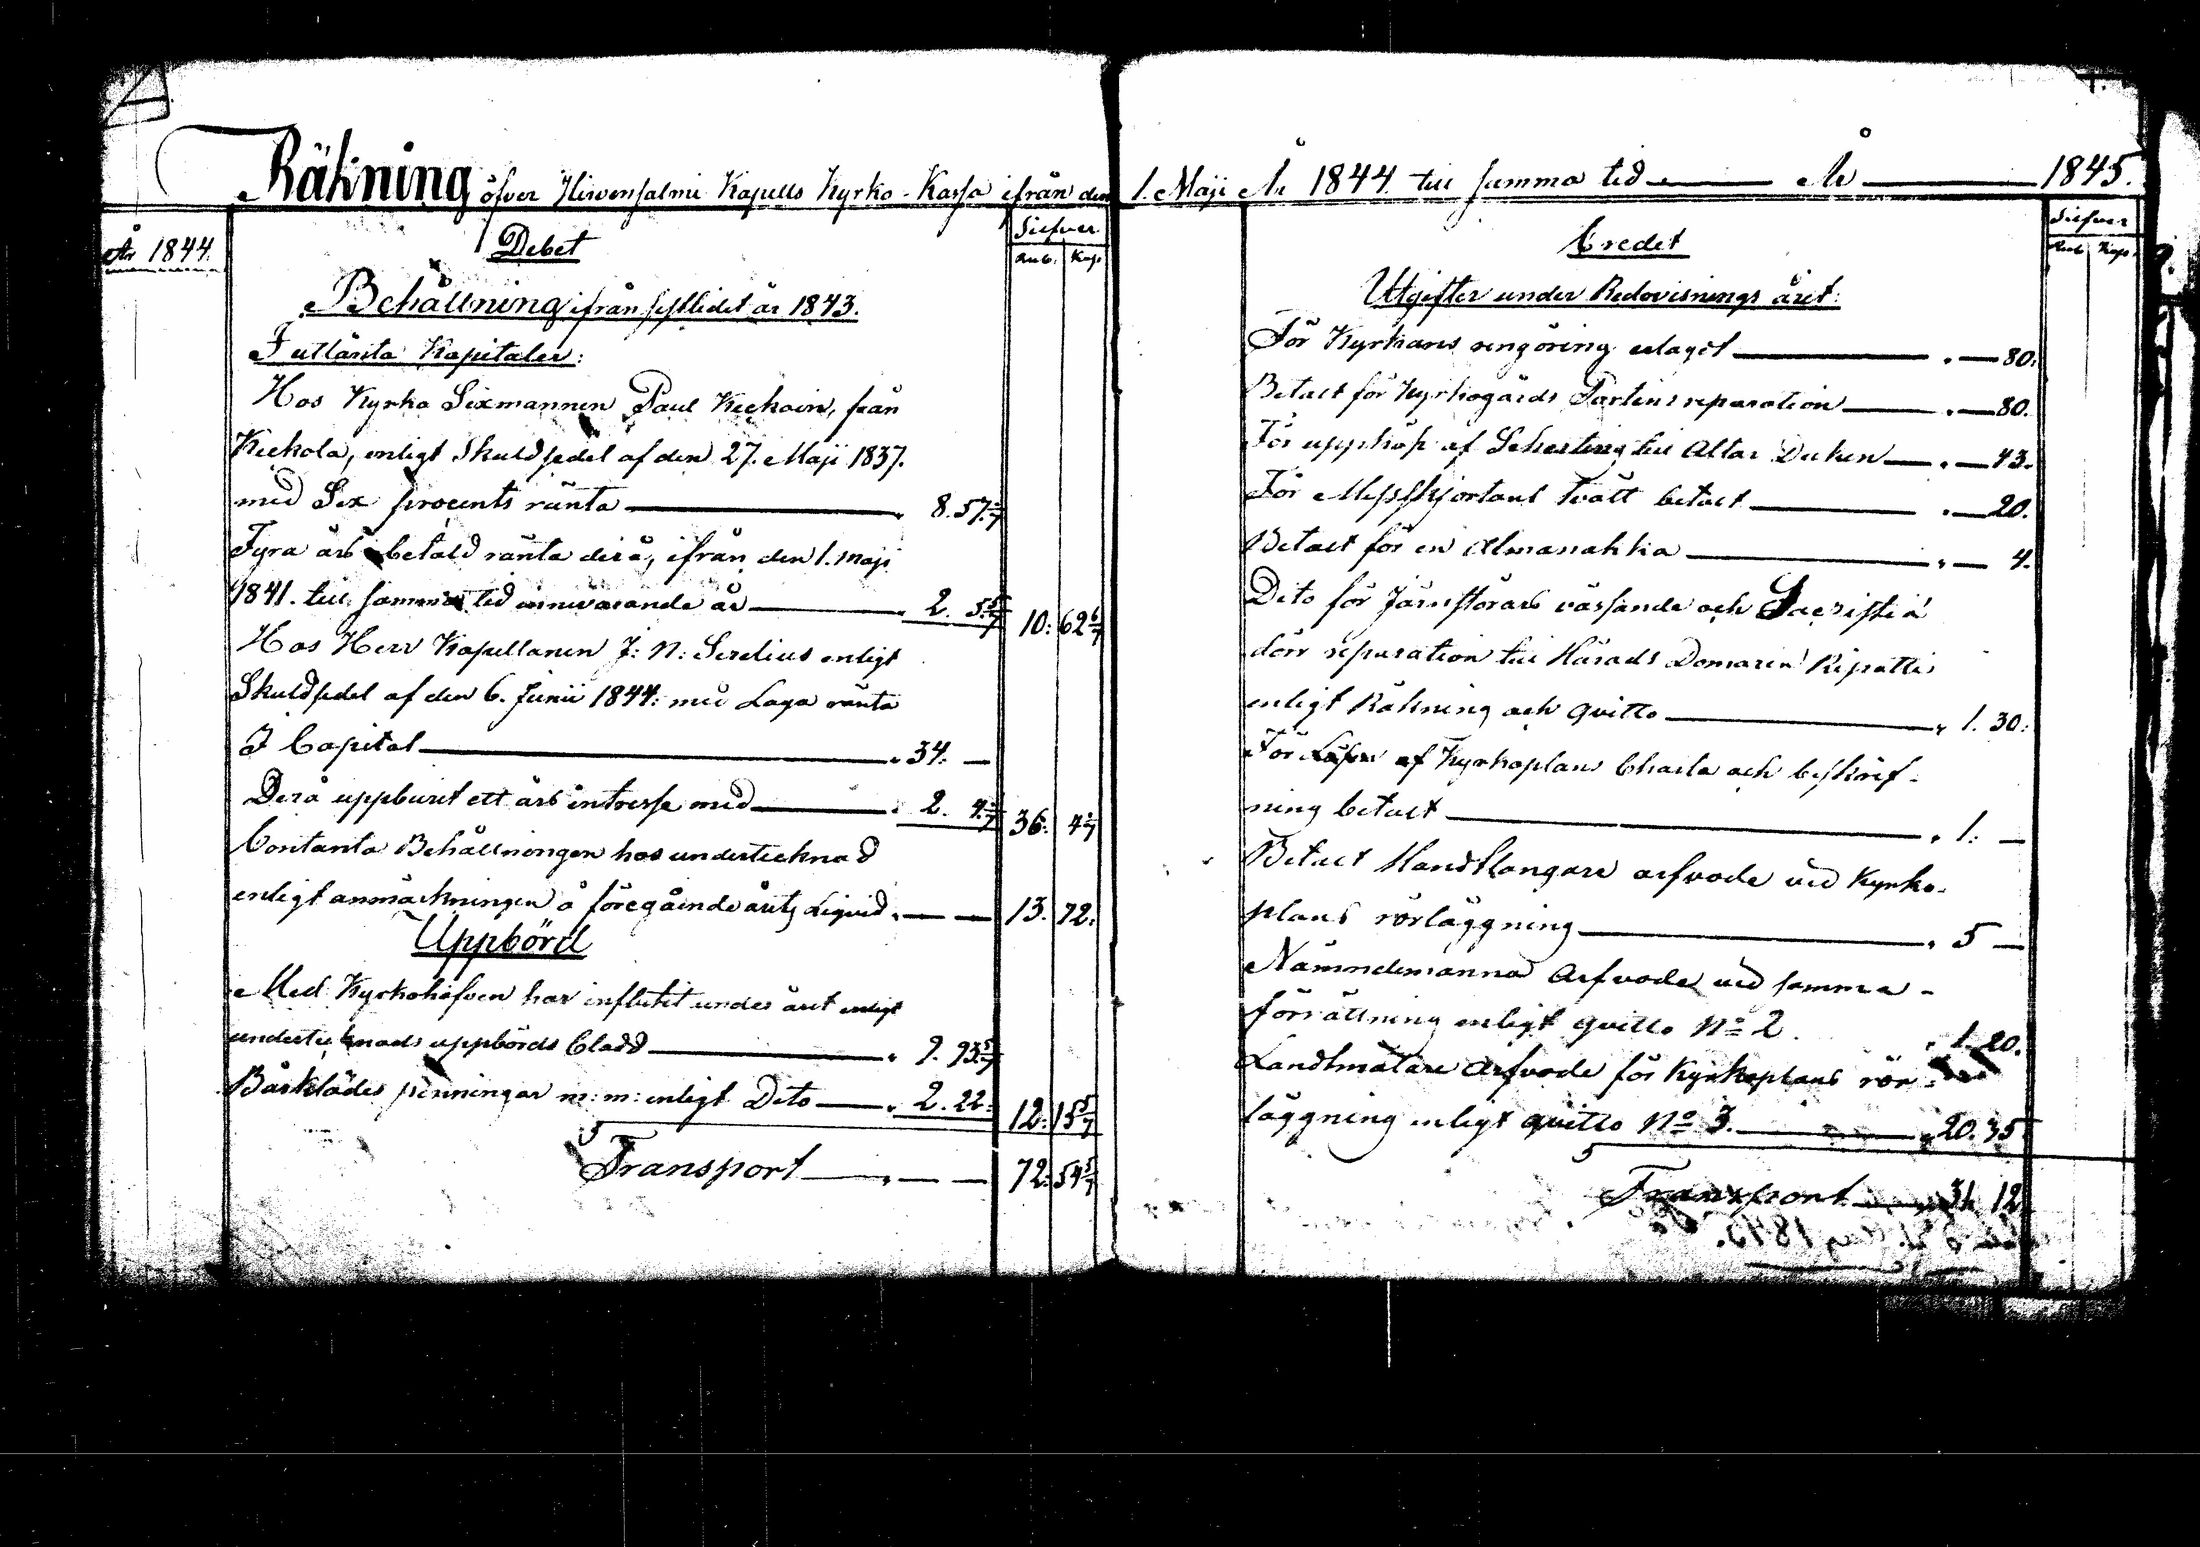 Räkning öfver Hirvensalmi Kapells Kyrko-Kassa ifrån den 1. Maji År 1844 till samma tid — År — 1845.
År 1844.
Debet
Silfver
Rub. Kop.
Behållning ifrån sistlidet år 1843.
I utlänta Kapitaler:
Hos Kyrko Sexmannen Paul Kiekoin, från
Kiekola, enligt Skuldsedel af den 27. Maji 1837.
med Sex procents ränta — 8. 57 1/7
Fyra års obetald ränta derå, ifrån den 1. Maji
1841. till samma tid innevarande år — 2. 5 5/7 10: 62 6/7
Hos Herr Kapellanen J: N: Serelius enligt
Skuldsedel af den 6. Junii 1844: med Laga ränta
I Capital — 34. —
Derå uppburit ett års intresse med — 2. 4 2/7 36: 4 2/7
Contanta Behållningen hos undertecknad
enligt anmärkningen å föregående årets Liqvid — 13. 72:
Uppbörd
Med Kyrkohåfven har influtit under året enligt
undertecknads uppbörds Cladd — 9. 93 5/7
Bårklädes penningar m: m: enligt Dito — 2. 22: 12: 15 5/7
Transport — 72: 54 5/7
Credit
Silfver
Rub. Kop.
Utgifter under Redovisnings året:
För Kyrkans rengöring erlagdt — 80:
Betalt för Kyrkogårds Portens reparation — 80.
För uppköp af Scherting till Altar Duken — 43.
För Messskjortans tvätt betalt — 20.
Betalt för en Almanakka — 4.
Dito för Järnstörars vässande och Sacristiä
dörr reparation till Härads Domaren Ripatti
enligt Räkning och qvitto — 1. 30:
För af Kyrkoplans Charta och beskrif-
ning betalt — 1: —
Betalt Handtlangare arfvode vid Kyrko-
plans rörläggning — 5 —
Nämndemanna Arfvode vid samma
förrättning enligt qvitto No 2. 1. 20.
Landtmätare Arfvode för Kyrkoplans rör-
läggning enligt qvitto No 3. — 20. 35
Transport — 31. 12